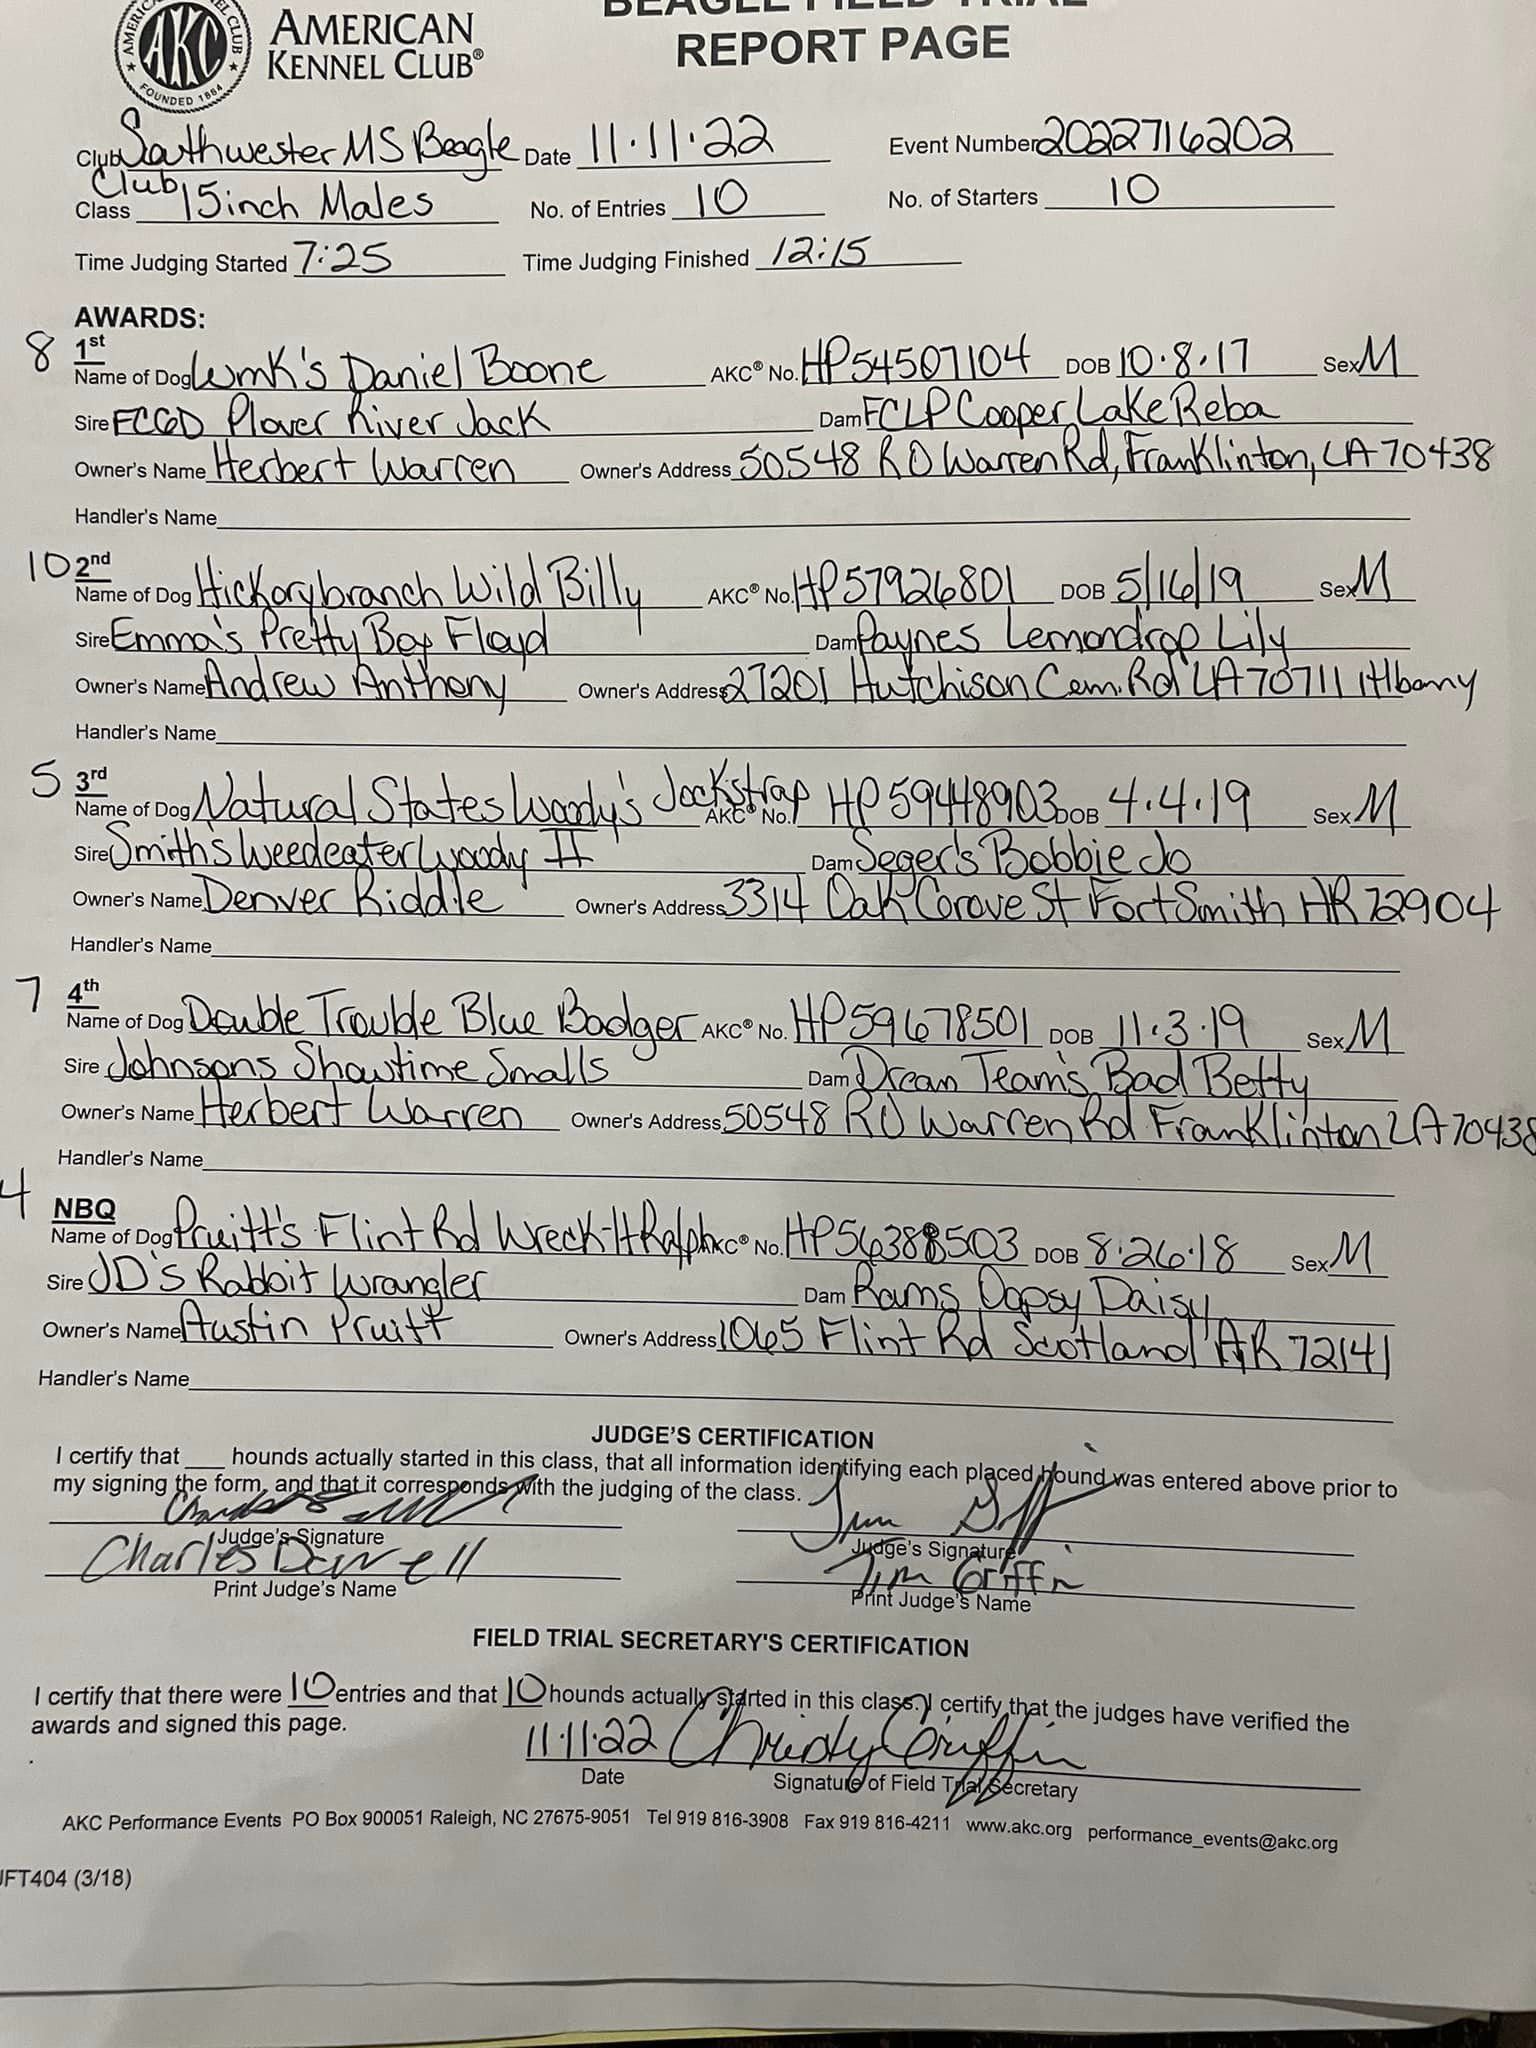 AMERICAN KENNEL CLUB
AKC
FOUNDED 1884
AMERICAN
KENNEL CLUB®
BEAGLE FIELD TRIAL
REPORT PAGE
Club Southwester MS Beagle Club Date 11·11·22 Event Number 2022716202
Class 15inch Males No. of Entries 10 No. of Starters 10
Time Judging Started 7:25 Time Judging Finished 12:15
AWARDS:
8 1st
Name of Dog Wmk's Daniel Boone AKC® No. HP54507104 DOB 10·8·17 Sex M
Sire FCGD Plover River Jack Dam FCLP Cooper Lake Reba
Owner's Name Herbert Warren Owner's Address 50548 RO Warren Rd, Franklinton, LA 70438
Handler's Name
10 2nd
Name of Dog Hickorybranch Wild Billy AKC® No. HP57926801 DOB 5/16/19 Sex M
Sire Emma's Pretty Boy Floyd Dam Paynes Lemondrop Lily
Owner's Name Andrew Anthony Owner's Address 27201 Hutchison Cem. Rd LA 70711 Albany
Handler's Name
5 3rd
Name of Dog Natural States Woody's Jockstrap AKC® No. HP59448903 DOB 4·4·19 Sex M
Sire Smith's Weedeater Woody II Dam Seger's Bobbie Jo
Owner's Name Denver Riddle Owner's Address 3314 Oak Grove St Fort Smith AR 72904
Handler's Name
7 4th
Name of Dog Double Trouble Blue Badger AKC® No. HP59678501 DOB 11·3·19 Sex M
Sire Johnsons Showtime Smalls Dam Drean Team's Bad Betty
Owner's Name Herbert Warren Owner's Address 50548 RO Warren Rd Franklinton LA 70438
Handler's Name
4 NBQ
Name of Dog Pruitt's Flint Rd Wreck-It Ralph AKC® No. HP56388503 DOB 8·26·18 Sex M
Sire JD's Rabbit Wrangler Dam Rams Oopsy Daisy
Owner's Name Austin Pruitt Owner's Address 1065 Flint Rd Scotland AR 72141
Handler's Name
JUDGE'S CERTIFICATION
I certify that ___ hounds actually started in this class, that all information identifying each placed hound was entered above prior to
my signing the form, and that it corresponds with the judging of the class.
Judge's Signature Judge's Signature
Charles Darrell Tim Griffin
Print Judge's Name Print Judge's Name
FIELD TRIAL SECRETARY'S CERTIFICATION
I certify that there were 10 entries and that 10 hounds actually started in this class. I certify that the judges have verified the
awards and signed this page.
11·11·22 Christy Griffin
Date Signature of Field Trial Secretary
AKC Performance Events PO Box 900051 Raleigh, NC 27675-9051 Tel 919 816-3908 Fax 919 816-4211 www.akc.org performance_events@akc.org
JFT404 (3/18)